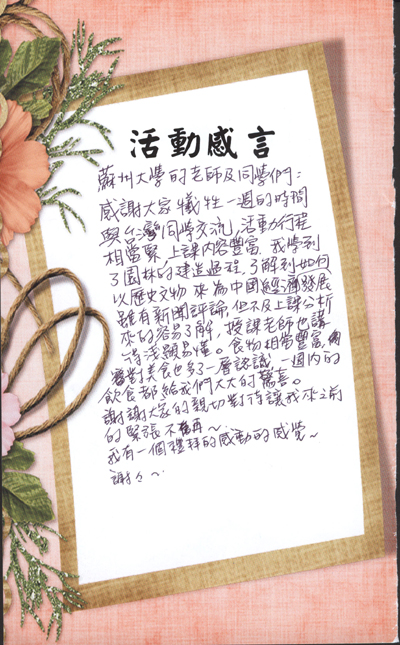 活動感言
蘇州大學的老師及同學們：
感謝大家犧牲一週的時間
與台灣同學交流，活動行程
相當緊，上課內容豐富，我學到
了園林的建造過程，了解到如何
以歷史文物來為中國經濟發展
雖有新聞評論，但不及上課分析
來的容易了解，授課老師也講
得淺顯易懂。食物相當豐富，
對美食也多了一層認識，一週內的
飲食都給我們大大的驚喜。
謝謝大家的親切對待讓我來之前
的緊張不再～
我有一個禮拜的感動的感覺～
謝々～